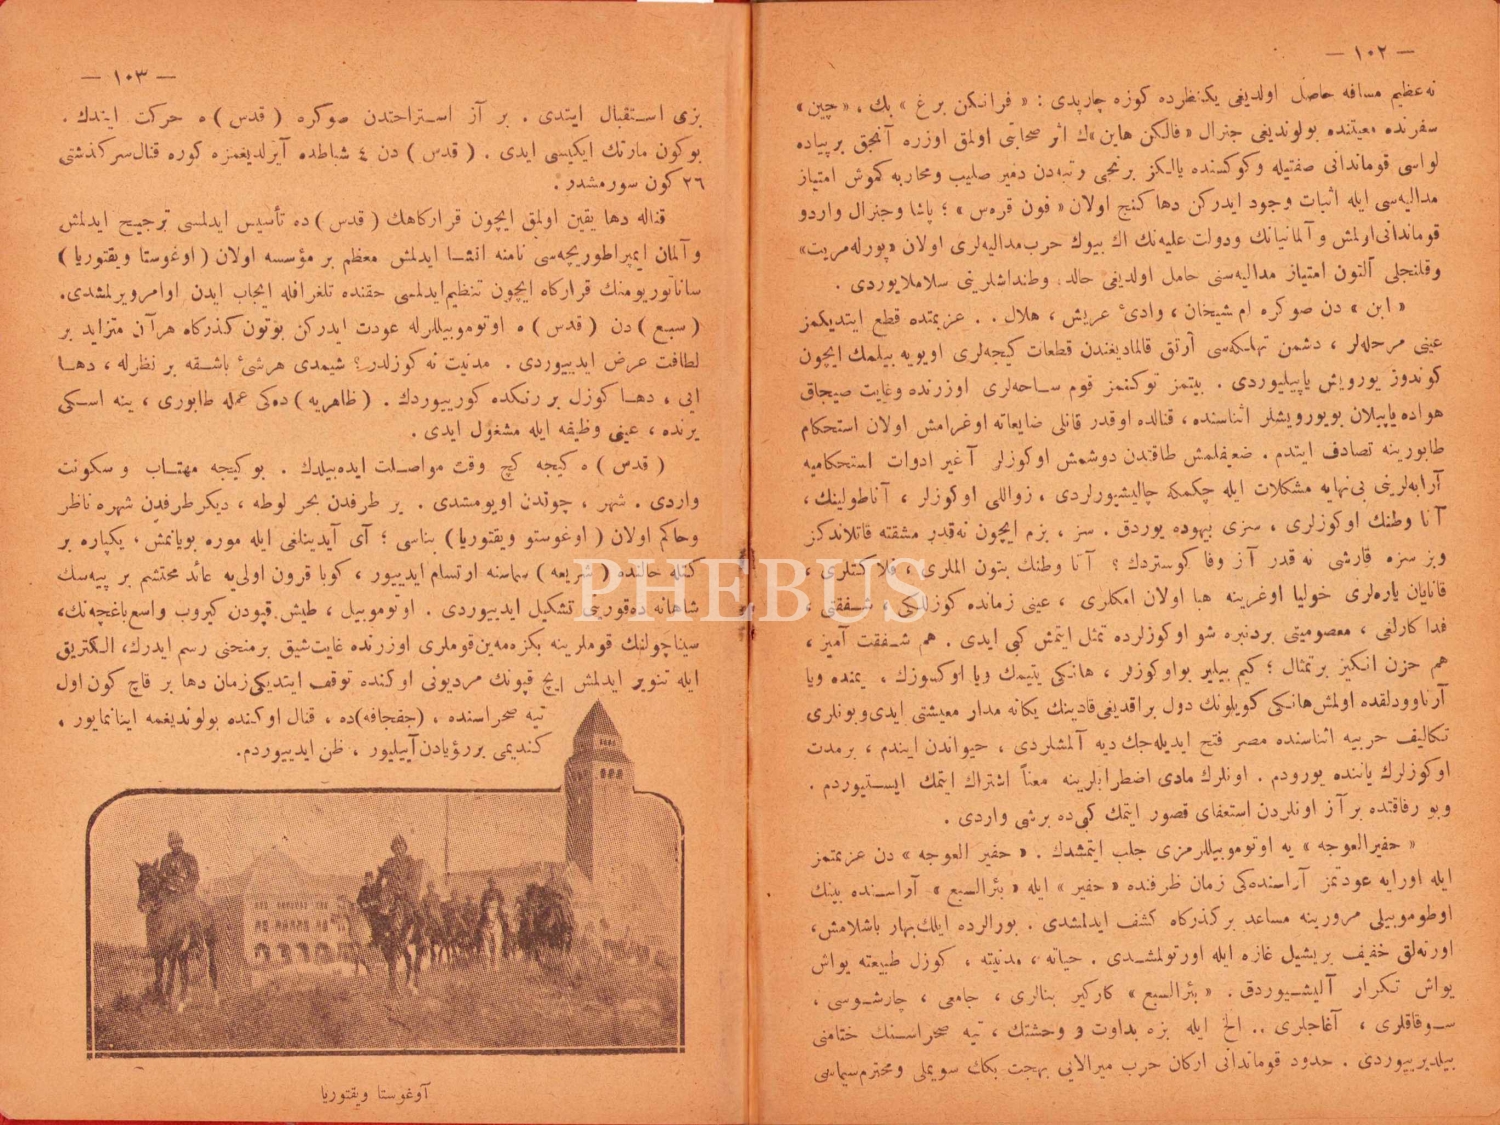 — ١٠٢ —
نه‌عظیم مسافه حاصل اولدیغی یكنظرده كوزه چارپدی : « فرانكن برغ » بك ، « چین »
سفرنده معیتنده بولوندیغی جنرال « فالكن هاین »ك اثر صحابتی اولمق اوزره آنجق برپیاده
لواسی قوماندانی صفتیله وكوكسنده یالكز برنجی رتبه‌دن دمیر صلیب ومحاربه كموش امتیاز
مدالیه‌سی ایله اثبات وجود ایدركن دها كنج اولان « فون قره‌س » ؛ پاشا وجنرال واردو
قوماندانی اولمش و آلمانیانك ودولت علیه‌نك اك بیوك حرب‌مدالیه‌لری اولان «پورله‌مریت»
وقلنجلی آلتون امتیاز مدالیه‌سنی حامل اولدیغی حالده وطنداشلرینی سلاملایوردی .
« ابن » دن صوكره ام شیخان ، وادئ عریش ، هلال . . عزیمتده قطع ایتدیكمز
عینی مرحله‌لر ، دشمن تهلكه‌سی آرتق قالمادیغندن قطعات كیجه‌لری اویویه بیلمك ایچون
كوندوز یورویش یاپیلیوردی . بیتمز توكنمز قوم ساحه‌لری اوزرنده وغایت صیجاق
هواده یاپیلان بویورویشلر اثناسنده ، قنالده اوقدر قانلی ضایعاته اوغرامش اولان استحكام
طابورینه تصادف ایتدم . ضعیفلمش طاقتدن دوشمش اوكوزلر آغیر ادوات استحكامیه
آرابه‌لرینی بی‌نهایه مشكلات ایله چكمكه چالیشیورلردی . زواللی اوكوزلر ، آناطولینك ،
آنا وطنك اوكوزلری ، سزی بیهوده یوردق . سز ، بزم ایچون نه‌قدر مشقته قاتلاندكز
وبز سزه قارشی نه قدر آز وفا كوستردك ؟ آنا وطنك بتون الملری ، فلاكتلری ،
قانایان یاره‌لری خولیا اوغرینه هبا اولان امكلری ، عینی زمانده كوزللكی ، شفقتی ،
فداكارلغی ، معصومیتی بردنبره شو اوكوزلرده تمثل ایتمش كبی ایدی . هم شفقت آمیز ،
هم حزن انكیز برتمثال ؛ كیم بیلیر بواوكوزلر ، هانكی یتیمك ویا اوكسوزك ، یمنده ویا
آرناوودلقده اولمش هانكی كویلونك دول براقدیغی قادینك یكانه مدار معیشتی ایدی‌وبونلری
تكالیف حربیه اثناسنده مصر فتح ایدیله‌جك دیه آلمشلردی ، حیواندن ایندم ، برمدت
اوكوزلرك یاننده یورودم . اونلرك مادی اضطرابلرینه معناً اشتراك ایتمك ایستیوردم .
وبو رفاقتده بر آز اونلردن استعفای قصور ایتمك كبی‌ده برشی واردی .
« حفیرالعوجه » یه اوتوموبیللرمزی جلب ایتمشدك . « حفیر العوجه » دن عزیمتمز
ایله اورایه عودتمز آراسنده‌كی زمان ظرفنده « حفیر » ایله « بئرالسبع » آراسنده بینك
اوطوموبیلی مرورینه مساعد بركذركاه كشف ایدلمشدی . بورالرده ایلك‌بهار باشلامش،
اورته‌لق خفیف بریشیل غازه ایله اورتولمشدی . حیاته ، مدنیته ، كوزل طبیعته یواش
یواش تكرار آلیشیوردق . « بئرالسبع » كاركیر بنالری ، جامعی ، چارشوسی ،
سوقاقلری ، آغاجلری .. الخ ایله بزه بداوت و وحشتك ، تیه صحراسنك ختامنی
بیلدیرییوردی . حدود قوماندانی اركان حرب میرالایی بهجت بكك سویملی ومحترم‌سیماسی
— ١٠٣ —
بزی استقبال ایتدی . بر آز استراحتدن صوكره ( قدس ) ه حركت ایتدك .
بوكون مارتك ایكیسی ایدی . ( قدس ) دن ٤ شباطده آیرلدیغمزه كوره قنال‌سركذشتی
٢٦ كون سورمشدر .
قناله دها یقین اولمق ایچون قراركاهك ( قدس ) ده تأسیس ایدلمسی ترجیح ایدلمش
و آلمان ایمپراطوریچه‌سی نامنه انشا ایدلمش معظم بر مؤسسه اولان ( اوغوستا ویقتوریا )
ساناتوریومنك قراركاه ایچون تنظیم‌ایدلمسی حقنده تلغرافله ایجاب ایدن اوامرویرلمشدی.
( سبع ) دن ( قدس ) ه اوتوموبیللرله عودت ایدركن بوتون كذركاه هرآن متزاید بر
لطافت عرض ایدییوردی . مدنیت نه كوزلدر؟ شیمدی هرشئ باشقه بر نظرله ، دها
ایی ، دها كوزل بر رنكده كورییوردك . ( ظاهریه ) ده‌كی عمله طابوری ، ینه اسكی
یرنده ، عینی وظیفه ایله مشغول ایدی .
( قدس ) ه كیجه كچ وقت مواصلت ایده‌بیلدك . بوكیجه مهتاب و سكونت
واردی . شهر ، چوتدن اویومشدی . بر طرفدن بحر لوطه ، دیكرطرفدن شهره ناظر
وحاكم اولان ( اوغوستو ویقتوریا ) بناسی ؛ آی آیدینلغی ایله موره بویانمش ، یكپاره بر
كتله حالنده ( شریعه ) سماسنه ارتسام ایدییور ، كوبا قرون اولی‌یه عائد محتشم بر پیه‌سك
شاهانه ده‌قورینی تشكیل ایدییوردی . اوتوموبیل ، طیش قپودن كیروب واسع‌باغچه‌نك،
سیناچولنك قوملرینه بكزه‌مه‌ین‌قوملری اوزرنده غایت‌شیق برمنحنی رسم ایدرك، الكتریق
ایله تنویر ایدلمش ایچ قپونك مردیونی اوكنده توقف ایتدیكی‌زمان دها بر قاچ كون اول
تیه صحراسنده ، (جفجافه)ده ، قنال اوكنده بولوندیغمه اینانمایور ،
كندیمی بررؤیادن‌آییلیور ، ظن ایدییوردم.
آوغوستا ویقتوریا
PHEBUS